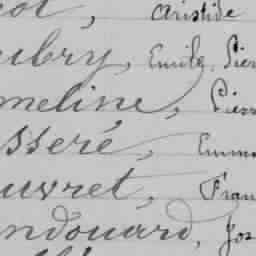 ot, Aristide
ubry, Emile, Pier
meline, Pierr
sseré, Emma
uvret, Fran
ndouard, Jos